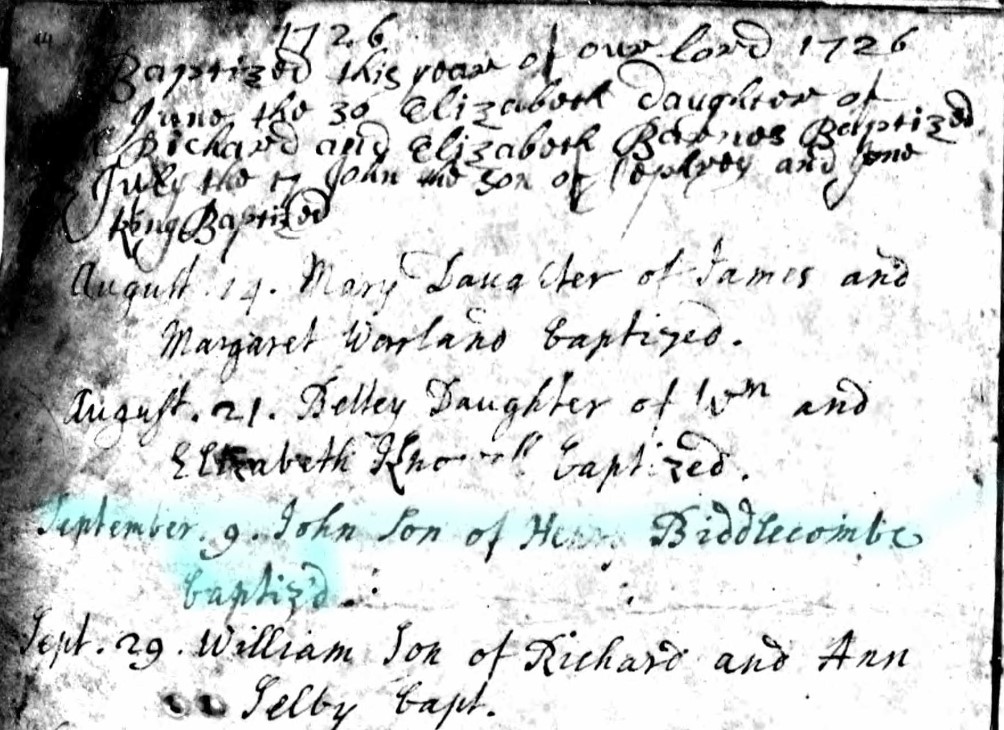 1726
Baptized this year of our lord 1726
June the 30 Elizabeth daughter of
Richard and Elizabeth Barnes Baptized
July the 17 John the son of Jephrey and Jone
King Baptized
August. 14. Mary Daughter of James and
Margaret Worland baptized.
August. 21. Betley Daughter of Wm and
Elizabeth baptized.
September. 9. John Son of Henry Biddlecombe
baptiz'd.
Sept. 29. William Son of Richard and Ann
Selby bapt.